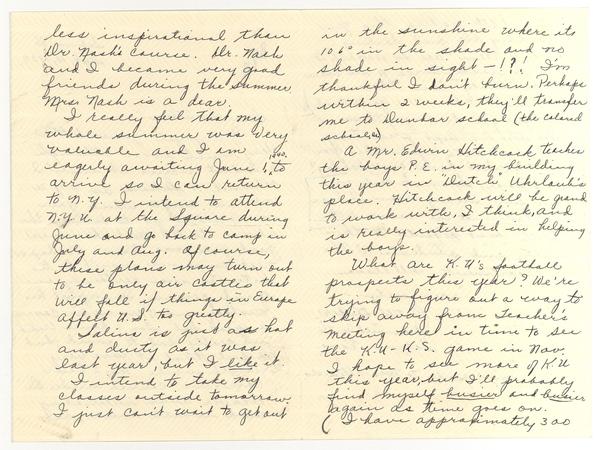 less inspirational than
Dr. Nash's course. Dr. Nash
and I became very good
friends during the summer.
Mrs. Nash is a dear.
I really feel that my
whole summer was very
valuable and I am
eagerly awaiting June 1, 1940. to
arrive so I can return
to N.Y. I intend to attend
N.Y.U. at the Square during
June and go back to camp in
July and Aug. Of course,
these plans may turn out
to be only air castles that
will fall if things in Europe
affect U.S. too greatly.
Salina is just as hot
and dusty as it was
last year, but I like it.
I intend to take my
classes outside tomorrow.
I just can't wait to get out
in the sunshine where its
106° in the shade and no
shade in sight -!?! I'm
thankful I don't burn. Perhaps
within 2 weeks, they'll transfer
me to Dunbar school (the colored
school)
A Mr. Edwin Hitchcock teaches
the boys P.E. in my building
this year in "Dutch" Uhrlaub's
place. Hitchcock will be grand
to work with, I think, and
is really interested in helping
the boys.
What are K.U's football
prospects this year? We're
trying to figure out a way to
skip away from Teacher's
Meeting here in time to see
the K.U - K.S. game in Nov.
I hope to see more of K.U
this year, but I'll probably
find myself busier and busier
again as time goes on.
( I have approximately 300